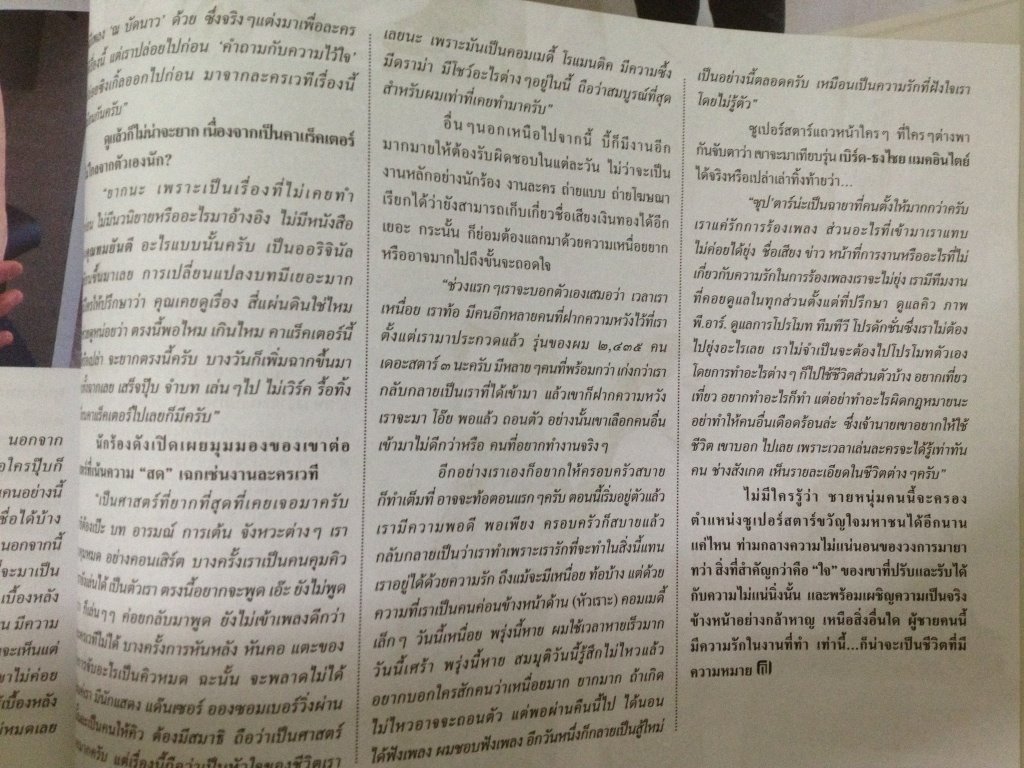 นอกจาก
อใครปุ๊บก็
คนอย่างนี้
ชื่อได้บ้าง
นอกจากนี้
จะมาเป็น
เบื้องหลัง
น มีความ
จะเห็นแต่
ขาไม่ค่อย
เบื้องหลัง
ม่หมดเลย
เพลง ‘ณ บัดนาว’ ด้วย ซึ่งจริงๆแต่งมาเพื่อละคร
เรื่องนี้ แต่เราปล่อยไปก่อน ‘คำถามกับความไว้ใจ’
ซิงเกิ้ลออกไปก่อน มาจากละครเวทีเรื่องนี้
กันครับ”
ดูแล้วก็ไม่น่าจะยาก เนื่องจากเป็นคาแร็คเตอร์
ไม่ไกลจากตัวเองนัก?
“ยากนะ เพราะเป็นเรื่องที่ไม่เคยทำ
ไม่มีนวนิยายหรืออะไรมาอ้างอิง ไม่มีหนังสือ
คุณหมยันตี อะไรแบบนั้นครับ เป็นออริจินัล
ขึ้นมาเลย การเปลี่ยนแปลงบทมีเยอะมาก
ให้ปรึกษาว่า คุณเคยดูเรื่อง สี่แผ่นดินใช่ไหม
ดูหน่อยว่า ตรงนี้พอไหม เกินไหม คาแร็คเตอร์นี้
เปล่า จะยากตรงนี้ครับ บางวันก็เพิ่มฉากขึ้นมา
ฉากเลย เสร็จปุ๊บ จำบท เล่นๆไป ไม่เวิร์ค รื้อทิ้ง
คาแร็คเตอร์ไปเลยก็มีครับ”
นักร้องดังเปิดเผยมุมมองของเขาต่อ
ที่เน้นความ “สด” เฉกเช่นงานละครเวที
“เป็นศาสตร์ที่ยากที่สุดที่เคยเจอมาครับ
ต้องเป๊ะ บท อารมณ์ การเต้น จังหวะต่างๆ เรา
หมด อย่างคอนเสิร์ต บางครั้งเราเป็นคนคุมคิว
เล่นได้ เป็นตัวเรา ตรงนี้อยากจะพูด เอ๊ะ ยังไม่พูด
ก็เล่นๆๆ ค่อยกลับมาพูด ยังไม่เข้าเพลงดีกว่า
เวทีไม่ได้ บางครั้งการหันหลัง หันคอ แตะของ
จับอะไรเป็นคิวหมด ฉะนั้น จะพลาดไม่ได้
มีนักแสดง แด๊นเซอร์ อองซอมเบอร์วิ่งผ่าน
เป็นคนให้คิว ต้องมีสมาธิ ถือว่าเป็นศาสตร์
มากครับ แต่เรื่องนี้ถือว่าเป็นหัวใจของชีวิตเรา
เลยนะ เพราะมันเป็นคอมเมดี้ โรแมนติค มีความซึ้ง
มีดราม่า มีโชว์อะไรต่างๆอยู่ในนี้ ถือว่าสมบูรณ์ที่สุด
สำหรับผมเท่าที่เคยทำมาครับ”
อื่นๆนอกเหนือไปจากนี้ บี้ก็มีงานอีก
มากมายให้ต้องรับผิดชอบในแต่ละวัน ไม่ว่าจะเป็น
งานหลักอย่างนักร้อง งานละคร ถ่ายแบบ ถ่ายโฆษณา
เรียกได้ว่ายังสามารถเก็บเกี่ยวชื่อเสียงเงินทองได้อีก
เยอะ กระนั้น ก็ย่อมต้องแลกมาด้วยความเหนื่อยยาก
หรืออาจมากไปถึงขั้นจะถอดใจ
“ช่วงแรกๆเราจะบอกตัวเองเสมอว่า เวลาเรา
เหนื่อย เราท้อ มีคนอีกหลายคนที่ฝากความหวังไว้ที่เรา
ตั้งแต่เรามาประกวดแล้ว รุ่นของผม ๒,๔๓๕ คน
เดอะสตาร์ ๓ นะครับ มีหลายๆคนที่พร้อมกว่า เก่งกว่าเรา
กลับกลายเป็นเราที่ได้เข้ามา แล้วเขาก็ฝากความหวัง
เราจะมา โอ๊ย พอแล้ว ถอนตัว อย่างนั้นเขาเลือกคนอื่น
เข้ามาไม่ดีกว่าหรือ คนที่อยากทำงานจริงๆ
อีกอย่างเราเองก็อยากให้ครอบครัวสบาย
ก็ทำเต็มที่ อาจจะท้อตอนแรกๆครับ ตอนนี้เริ่มอยู่ตัวแล้ว
เรามีความพอดี พอเพียง ครอบครัวก็สบายแล้ว
กลับกลายเป็นว่าเราทำเพราะเรารักที่จะทำในสิ่งนี้แทน
เราอยู่ได้ด้วยความรัก ถึงแม้จะมีเหนื่อย ท้อบ้าง แต่ด้วย
ความที่เราเป็นคนค่อนข้างหน้าด้าน (หัวเราะ) คอมเมดี้
เล็กๆ วันนี้เหนื่อย พรุ่งนี้หาย ผมใช้เวลาหายเร็วมาก
วันนี้เศร้า พรุ่งนี้หาย สมมุติวันนี้รู้สึกไม่ไหวแล้ว
อยากบอกใครสักคนว่าเหนื่อยมาก ยากมาก ถ้าเกิด
ไม่ไหวอาจจะถอนตัว แต่พอผ่านคืนนี้ไป ได้นอน
ได้ฟังเพลง ผมชอบฟังเพลง อีกวันหนึ่งก็กลายเป็นสู้ใหม่
เป็นอย่างนี้ตลอดครับ เหมือนเป็นความรักที่ฝังใจเรา
โดยไม่รู้ตัว”
ซูเปอร์สตาร์แถวหน้าใครๆ ที่ใครๆต่างพา
กันจับตาว่า เขาจะมาเทียบรุ่น เบิร์ด-ธงไชย แมคอินไตย์
ได้จริงหรือเปล่าเล่าทิ้งท้ายว่า...
“ซุป’ตาร์น่ะเป็นฉายาที่คนตั้งให้มากกว่าครับ
เราแค่รักการร้องเพลง ส่วนอะไรที่เข้ามาเราแทบ
ไม่ค่อยได้ยุ่ง ชื่อเสียง ข่าว หน้าที่การงานหรืออะไรที่ไม่
เกี่ยวกับความรักในการร้องเพลงเราจะไม่ยุ่ง เรามีทีมงาน
ที่คอยดูแลในทุกส่วนตั้งแต่ที่ปรึกษา ดูแลคิว ภาพ
พี.อาร์. ดูแลการโปรโมท ทีมทีวี โปรดักชั่นซึ่งเราไม่ต้อง
ไปยุ่งอะไรเลย เราไม่จำเป็นจะต้องไปโปรโมทตัวเอง
โดยการทำอะไรต่างๆ ก็ไปใช้ชีวิตส่วนตัวบ้าง อยากเที่ยว
เที่ยว อยากทำอะไรก็ทำ แต่อย่าทำอะไรผิดกฎหมายนะ
อย่าทำให้คนอื่นเดือดร้อนล่ะ ซึ่งเจ้านายเขาอยากให้ใช้
ชีวิต เขาบอก ไปเลย เพราะเวลาเล่นละครจะได้รู้เท่าทัน
คน ช่างสังเกต เห็นรายละเอียดในชีวิตต่างๆครับ”
ไม่มีใครรู้ว่า ชายหนุ่มคนนี้จะครอง
ตำแหน่งซูเปอร์สตาร์ขวัญใจมหาชนได้อีกนาน
แค่ไหน ท่ามกลางความไม่แน่นอนของวงการมายา
ทว่า สิ่งที่สำคัญกว่าคือ “ใจ” ของเขาที่ปรับและรับได้
กับความไม่แน่นิ่งนั้น และพร้อมเผชิญความเป็นจริง
ข้างหน้าอย่างกล้าหาญ เหนือสิ่งอื่นใด ผู้ชายคนนี้
มีความรักในงานที่ทำ เท่านี้...ก็น่าจะเป็นชีวิตที่มี
ความหมาย